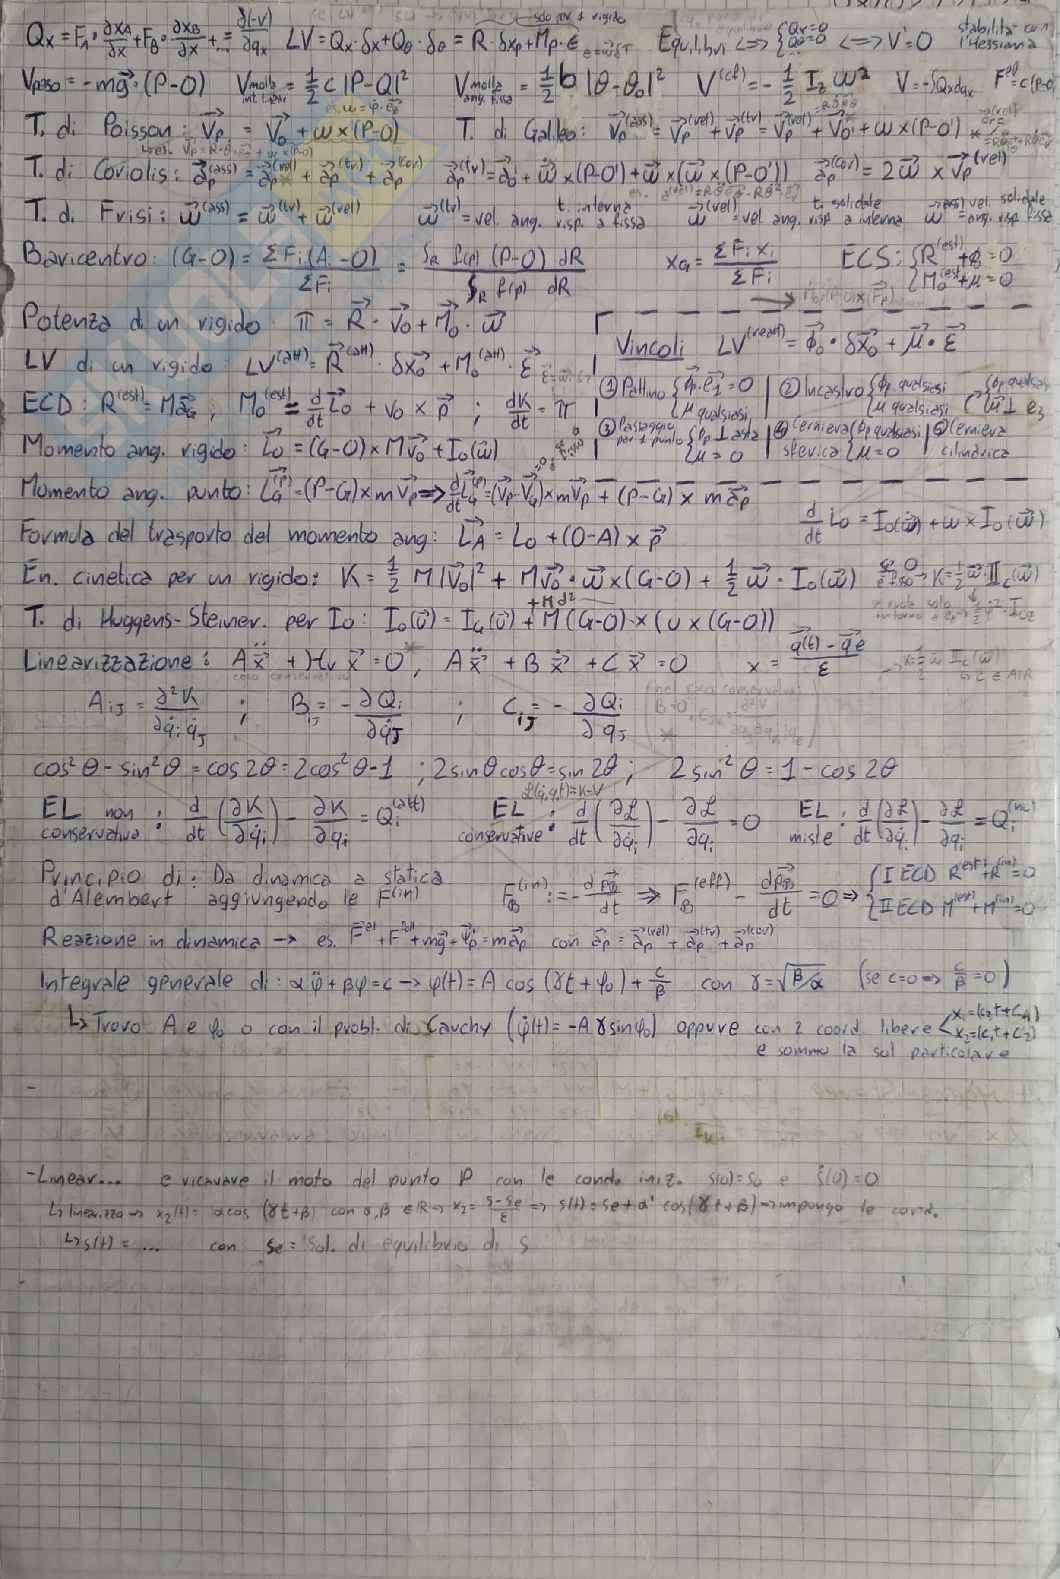 Qx = F_A · ∂x_A/∂x + F_B · ∂x_B/∂x + ... = ∂(-V)/∂qx   LV = Qx·δx + Qθ·δθ = R·δx_P + M_P·ε   Equilibri <=> {Qx=0 Qθ=0 <=> V'=0   stabilità con l'Hessiana
solo per 1 rigido
Vpeso = -mg⃗·(P-O)   V molla = 1/2 c |P-Q|²   V molla ang. fissa = 1/2 b |θ-θ₀|²   V^(cf) = -1/2 I_z ω²   V = -∫Qx dqx
T. di Poisson: v⃗_P = v⃗_O + ω×(P-O)   T. di Galileo: v⃗_P^(ass) = v⃗_P^(rel) + v⃗_P^(tr) = v⃗_P^(rel) + v⃗_O' + ω×(P-O')
T. di Coriolis: a⃗_P^(ass) = a⃗_P^(rel) + a⃗_P^(tr) + a⃗_P^(cor)   a⃗_P^(tr) = a⃗_O' + ω⃗̇×(P-O') + ω⃗×(ω⃗×(P-O'))   a⃗_P^(cor) = 2ω⃗ × v⃗_P^(rel)
T. di Frisi: ω⃗^(ass) = ω⃗^(tr) + ω⃗^(rel)   ω⃗^(tr) = vel. ang. t. interna risp. a fissa   ω⃗^(rel) = vel ang. t. solidale risp. a interna   ω⃗^(ass) = vel. ang. solidale risp. fissa
Baricentro: (G-O) = ΣFi(Ai-O)/ΣFi = ∫_R ρ(p) (P-O) dR / ∫_R ρ(p) dR   x_G = ΣFi xi/ΣFi   ECS: {R^(est)+ϕ=0 M_O^(est)+μ=0
Potenza di un rigido: π = R⃗·v⃗_O + M⃗_O·ω⃗
Vincoli   LV^(reatt) = ϕ⃗_O·δx⃗_O + μ⃗·ε⃗
LV di un rigido: LV^(att) = R⃗^(att)·δx⃗_O + M_O^(att)·ε⃗
① Pattino {ϕ·e⃗₁ = 0 μ qualsiasi | ② Incastro {ϕ_P qualsiasi μ qualsiasi
ECD: R^(est) = Ma⃗_G ; M_O^(est) = d/dt L⃗_O + v_O × p⃗ ; dK/dt = π
③ Passaggio per 1 punto {ϕ_P ⊥ asta μ = 0 | ④ Cerniera sferica {ϕ_P qualsiasi μ = 0 | ⑤ Cerniera cilindrica {ϕ_P qualsiasi μ⃗ ⊥ e₃
Momento ang. rigido: L⃗_O = (G-O)×Mv⃗_O + I_O(ω⃗)
Momento ang. punto: L⃗_G^(P) = (P-G)×mv⃗_P => d/dt L⃗_G^(P) = (v⃗_P - v⃗_G)×mv⃗_P + (P-G)×ma⃗_P
d/dt L_O = I_O(ω⃗̇) + ω×I_O(ω⃗)
Formula del trasporto del momento ang: L⃗_A = L_O + (O-A)×p⃗
En. cinetica per un rigido: K = 1/2 M|v⃗_O|² + Mv⃗_O·ω⃗×(G-O) + 1/2 ω⃗·I_O(ω⃗)
+Md²
T. di Huygens-Steiner per I_O: I_O(u⃗) = I_G(u⃗) + M(G-O)×(u×(G-O))
Linearizzazione: Aẍ⃗ + H_V x⃗ = 0* , Aẍ⃗ + Bẋ⃗ + Cx⃗ = 0   x = (q⃗(t) - q⃗e)/ε
A_ij = ∂²K/∂q̇i q̇j ; B_ij = -∂Qi/∂q̇j ; C_ij = -∂Qi/∂qj
cos²θ - sin²θ = cos2θ = 2cos²θ-1 ; 2sinθcosθ = sin2θ ; 2sin²θ = 1 - cos2θ
ℒ(q̇,q,t)=K-V
EL non conservative: d/dt (∂K/∂q̇i) - ∂K/∂qi = Qi^(att)   EL conservative: d/dt (∂ℒ/∂q̇i) - ∂ℒ/∂qi = 0   EL miste: d/dt (∂ℒ/∂q̇i) - ∂ℒ/∂qi = Qi^(nc)
Principio di d'Alembert: Da dinamica a statica aggiungendo le F^(in)   F_B^(in) := -dp⃗_B/dt => F_B^(eff) - dp⃗_B/dt = 0 => {I ECD R^(est)+R^(in)=0 II ECD M^(est)+M^(in)=0
Reazione in dinamica → es. F^el + F^pol + mg⃗ + ϕ⃗_P = ma⃗_P con a⃗_P = a⃗_P^(rel) + a⃗_P^(tr) + a⃗_P^(cor)
Integrale generale di: αφ̈ + βφ = c → φ(t) = A cos (γt + φ₀) + c/β con γ = √β/α (se c=0 => c/β = 0)
↳ Trovo A e φ₀ o con il probl. di Cauchy (φ̇(t) = -Aγ sinφ₀) oppure con 2 coord. libere
e sommo la sol particolare
-
- Linear... e ricavare il moto del punto P con le cond. iniz. s(0)=s₀ e ṡ(0)=0
↳ linearizzo → x₂(t) = αcos (γt+β) con α,β ∈ℝ → x₂ = (s-se)/ε => s(t) = se + α' cos(γt+β) → impongo le cond.
↳ s(t) = ... con se = sol. di equilibrio di s